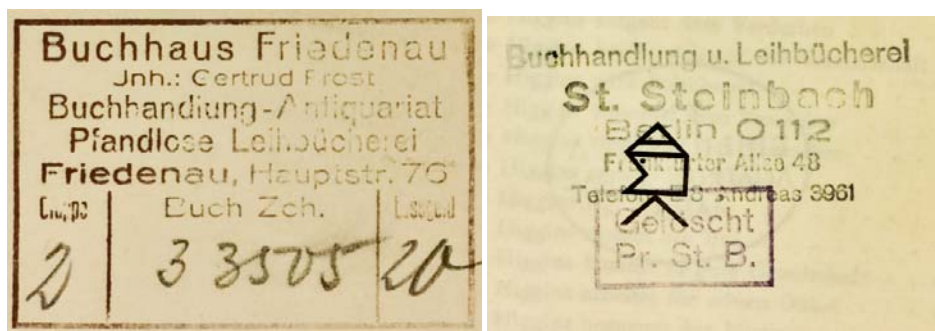 Buchhaus Friedenau
Jnh.: Gertrud Frost
Buchhandlung-Antiquariat
Pfandlose Leihbücherei
Friedenau, Hauptstr. 76
Gruppe Buch Zch.
2 33505 20
Buchhandlung u. Leihbücherei
St. Steinbach
Berlin O 112
Frankfurter Allee 48
Telefon: E 8 Andreas 3961
Gelöscht
Pr. St. B.